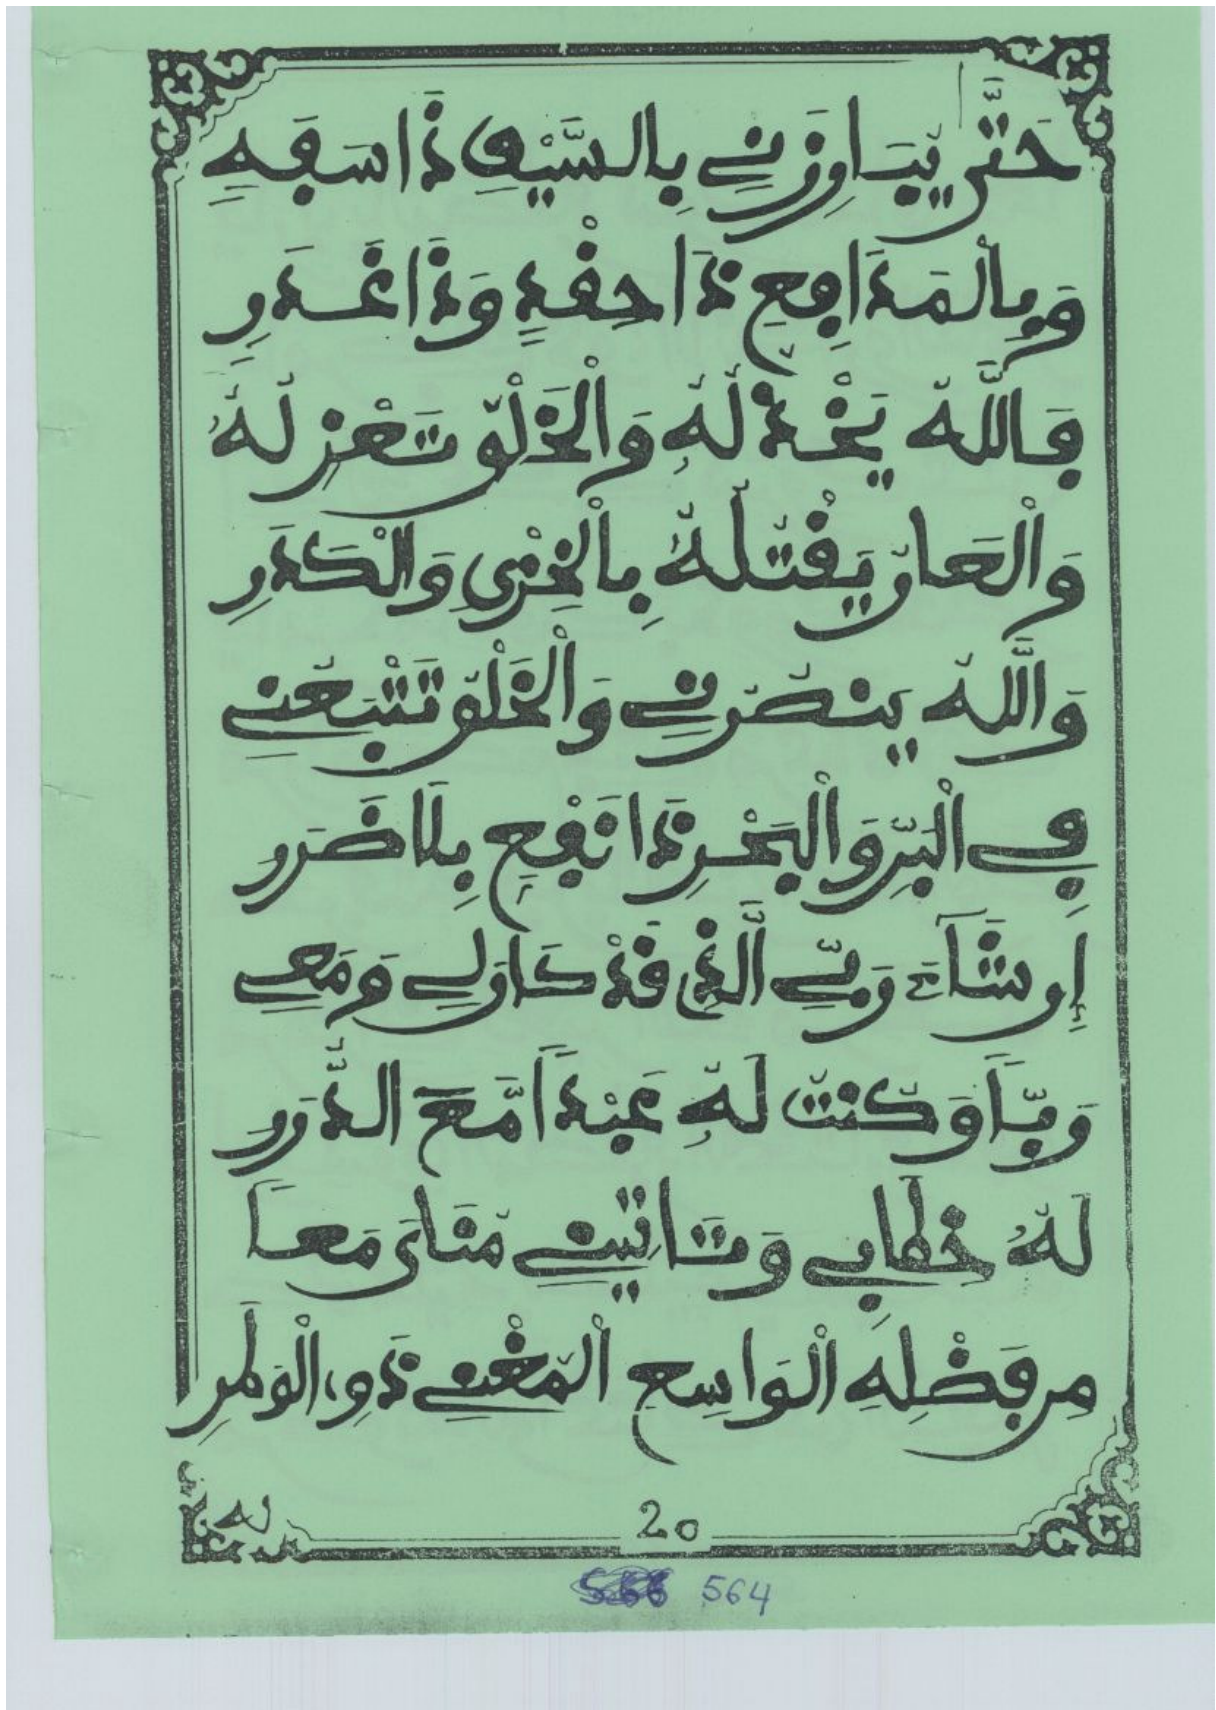 حَتَّى يُبَارِزَنِي بِالسَّيْفِ ذَا سَفَهٍ
وَبِالْمَدَافِعِ ذَا حِقْدٍ وَذَا غَدَرِ
فَاللَّهُ يَخْذُلُهُ وَالْخَلْقُ تَعْزِلُهُ
وَالْعَارُ يَقْتُلُهُ بِالْخِزْيِ وَالْكَدَرِ
وَاللَّهُ يَنصُرُنِي وَالْخَلْقُ تَتْبَعُنِي
فِي الْبَرِّ وَالْبَحْرِ ذَا نَفْعٍ بِلَا ضَرَرِ
إِن شَاءَ رَبِّي الَّذِي قَدْ كَانَ لِي وَمَعِي
رَبًّا وَكُنتُ لَهُ عَبْدًا مَّعَ الدُّرَرِ
لَهُ خِطَابِي وَتَاتِينِي مُنَايَ مَعًا
مِن فَضْلِهِ الْوَاسِعِ الْمُغْنِي ذَوِ،الْوَطَرِ
له
20
564